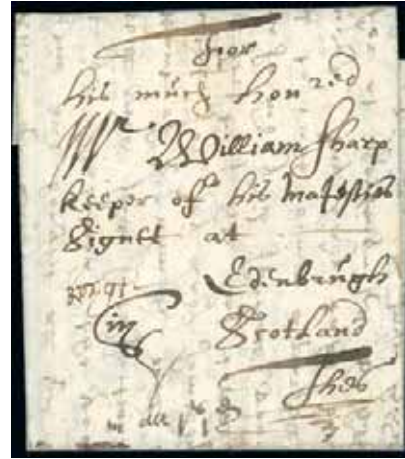 ffor
his much honred
Mr William Sharp
keeper of his Majesties
Signet at
Edenbrugh
Scotland
These